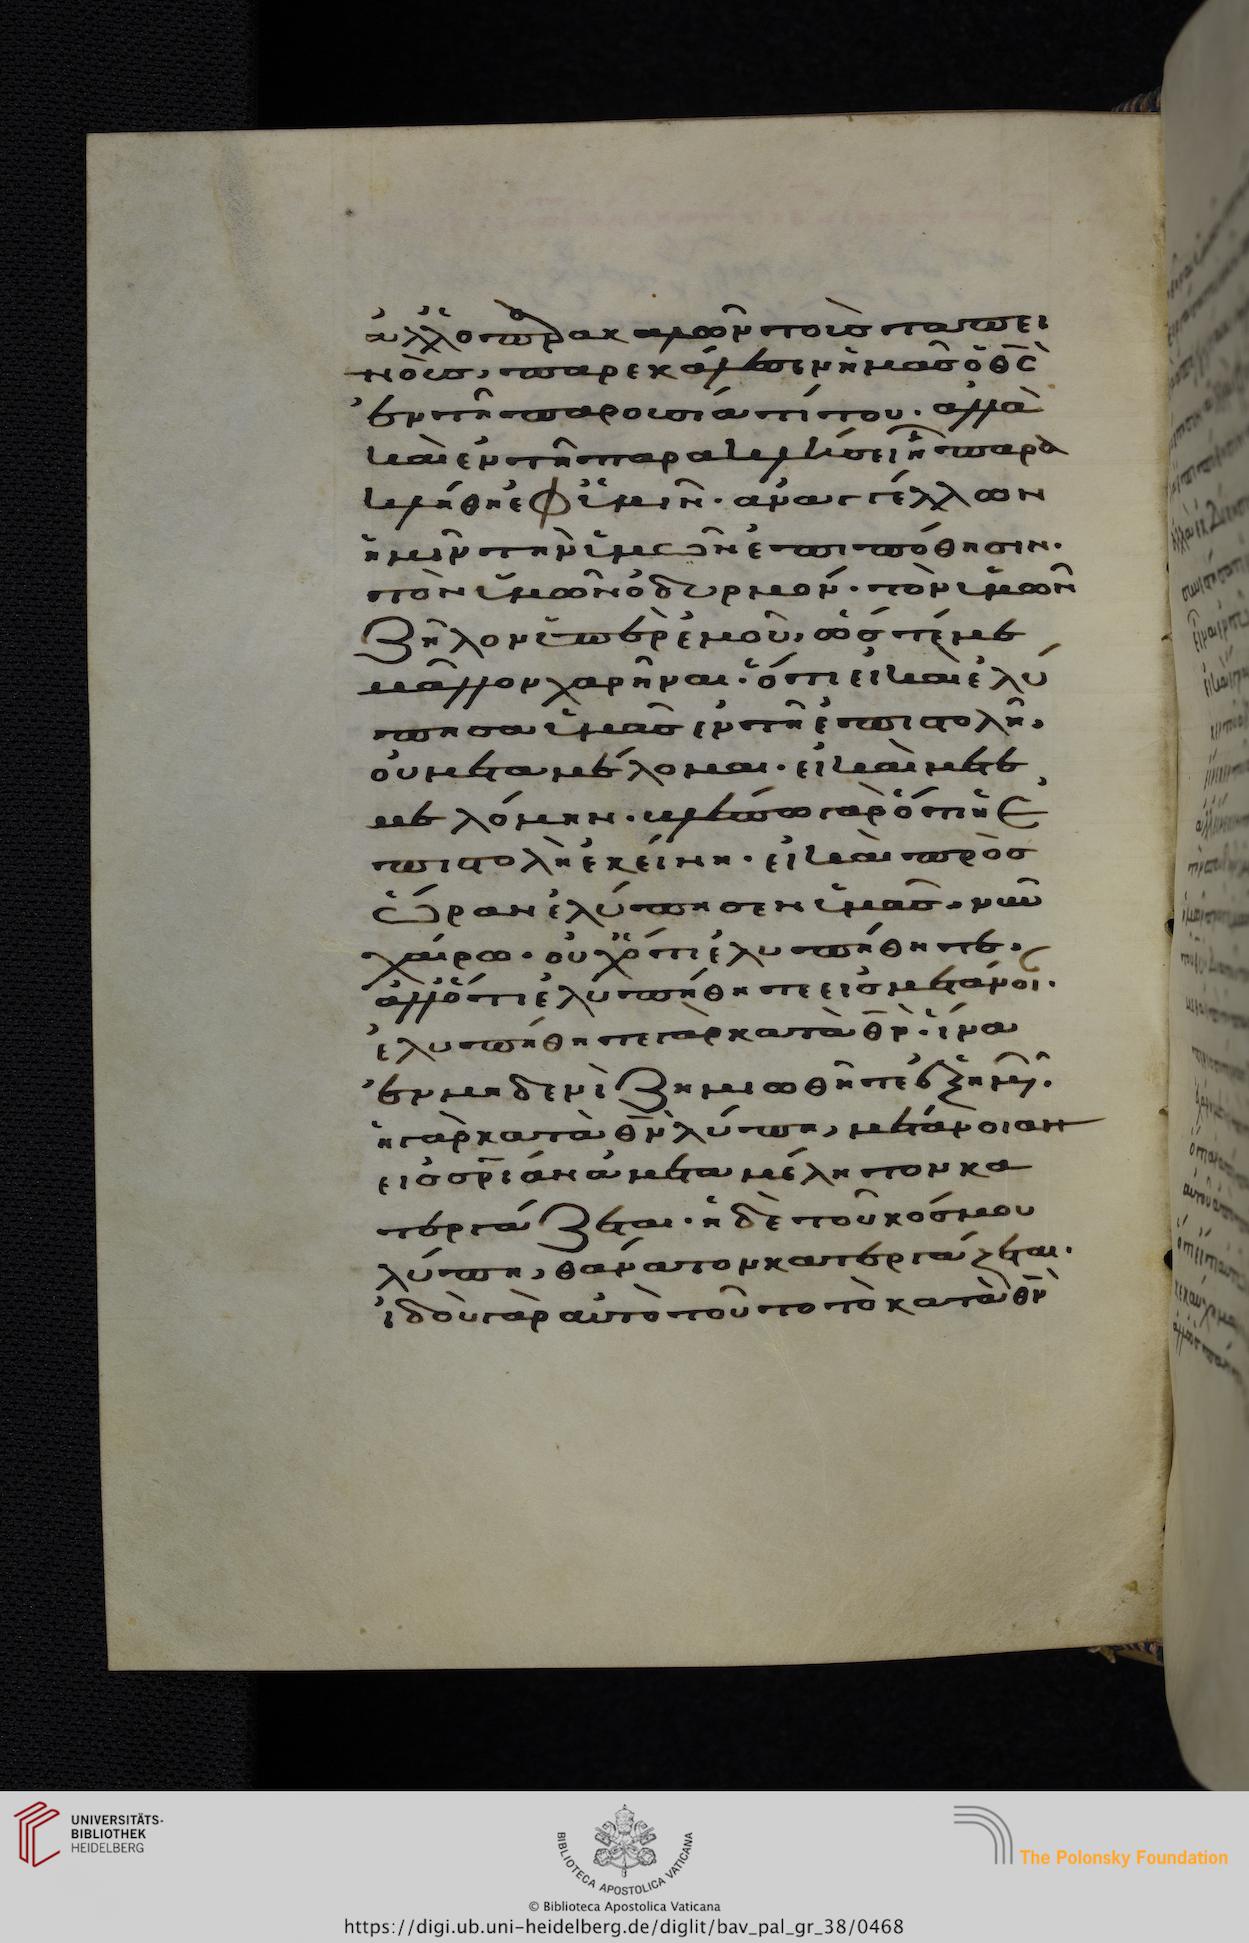 ἀλλ' ὁ παρακαλῶν τοὺς ταπει
νοὺς, παρεκάλεσεν ἡμᾶς ὁ θ̅ς̅
ἐν τῆ παρουσία τίτου. ἀλλὰ
καὶ ἐν τῆ παρακλήσει ἧ παρε
κλήθη ἐφ' ὑμῖν. ἀναγγέλλων
ἡμῖν τὴν ὑμῶν ἐπιπόθησιν.
τὸν ὑμῶν ὀδυρμόν. τὸν ὑμῶν
ζῆλον ὑπὲρ ἐμοῦ, ὥστέ με
μᾶλλον χαρῆναι. ὅτι εἰ καὶ ἐλύ
πησα ὑμᾶς ἐν τῆ ἐπιστολῆ,
οὐ μεταμέλομαι. εἰ καὶ μετε
μελόμην. βλέπω γὰρ ὅτι ἡ ἐ
πιστολὴ ἐκείνη. εἰ καὶ πρὸς
ὥραν ἐλύπησεν ὑμᾶς, νῦν
χαίρω. οὐχ' ὅτι ἐλυπήθητε.
ἀλλ' ὅτι ἐλυπήθητε εἰς μετάνοι.
ἐλυπήθητε γὰρ κατὰ θ̅ν̅. ἵνα
ἐν μηδενὶ ζημιωθῆτε ἐξ ἡμῶν.
ἡ γὰρ κατὰ θ̅ν̅ λύπη, μετάνοιαν
εἰς σ̅ρ̅ίαν ἀμεταμέλητον κα
τεργάζεται. ἡ δὲ τοῦ κόσμου
λύπη, θάνατον κατεργάζεται.
ἰδοὺ γὰρ αὐτὸ τοῦτο τὸ κατὰ θ̅ν̅
UNIVERSITÄTS-
BIBLIOTHEK
HEIDELBERG
BIBLIOTECA APOSTOLICA VATICANA
© Biblioteca Apostolica Vaticana
The Polonsky Foundation
https://digi.ub.uni-heidelberg.de/diglit/bav_pal_gr_38/0468